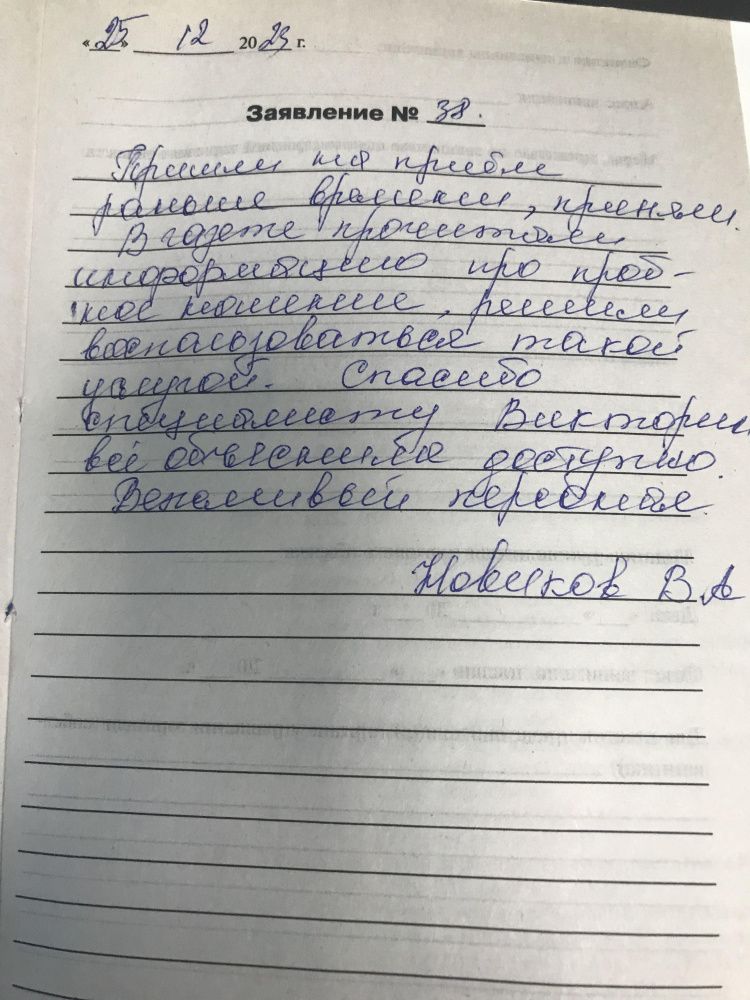 «25» 12 2023 г.
Заявление № 38.
Пришли на приём
раньше времени, приняли.
В газете прочитали
информацию про проб-
ное ношение, решили
воспользоваться такой
услугой. Спасибо
специалисту Виктории
всё объяснила доступно.
Вежливый персонал.
Новиков В.А